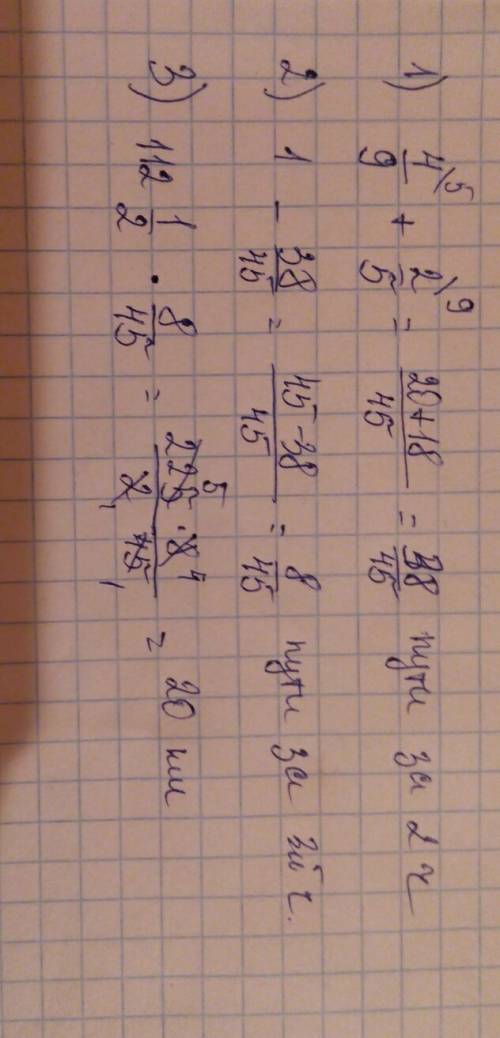 1) 4/9\5 + 2/5\9 = 20+18/45 = 38/45 пути за 2 ч
2) 1 - 38/45 = 45-38/45 = 8/45 пути за 3й ч.
3) 112 1/2 · 8/45 = 225 5 · 8 4/2 1 · 45 1 = 20 км